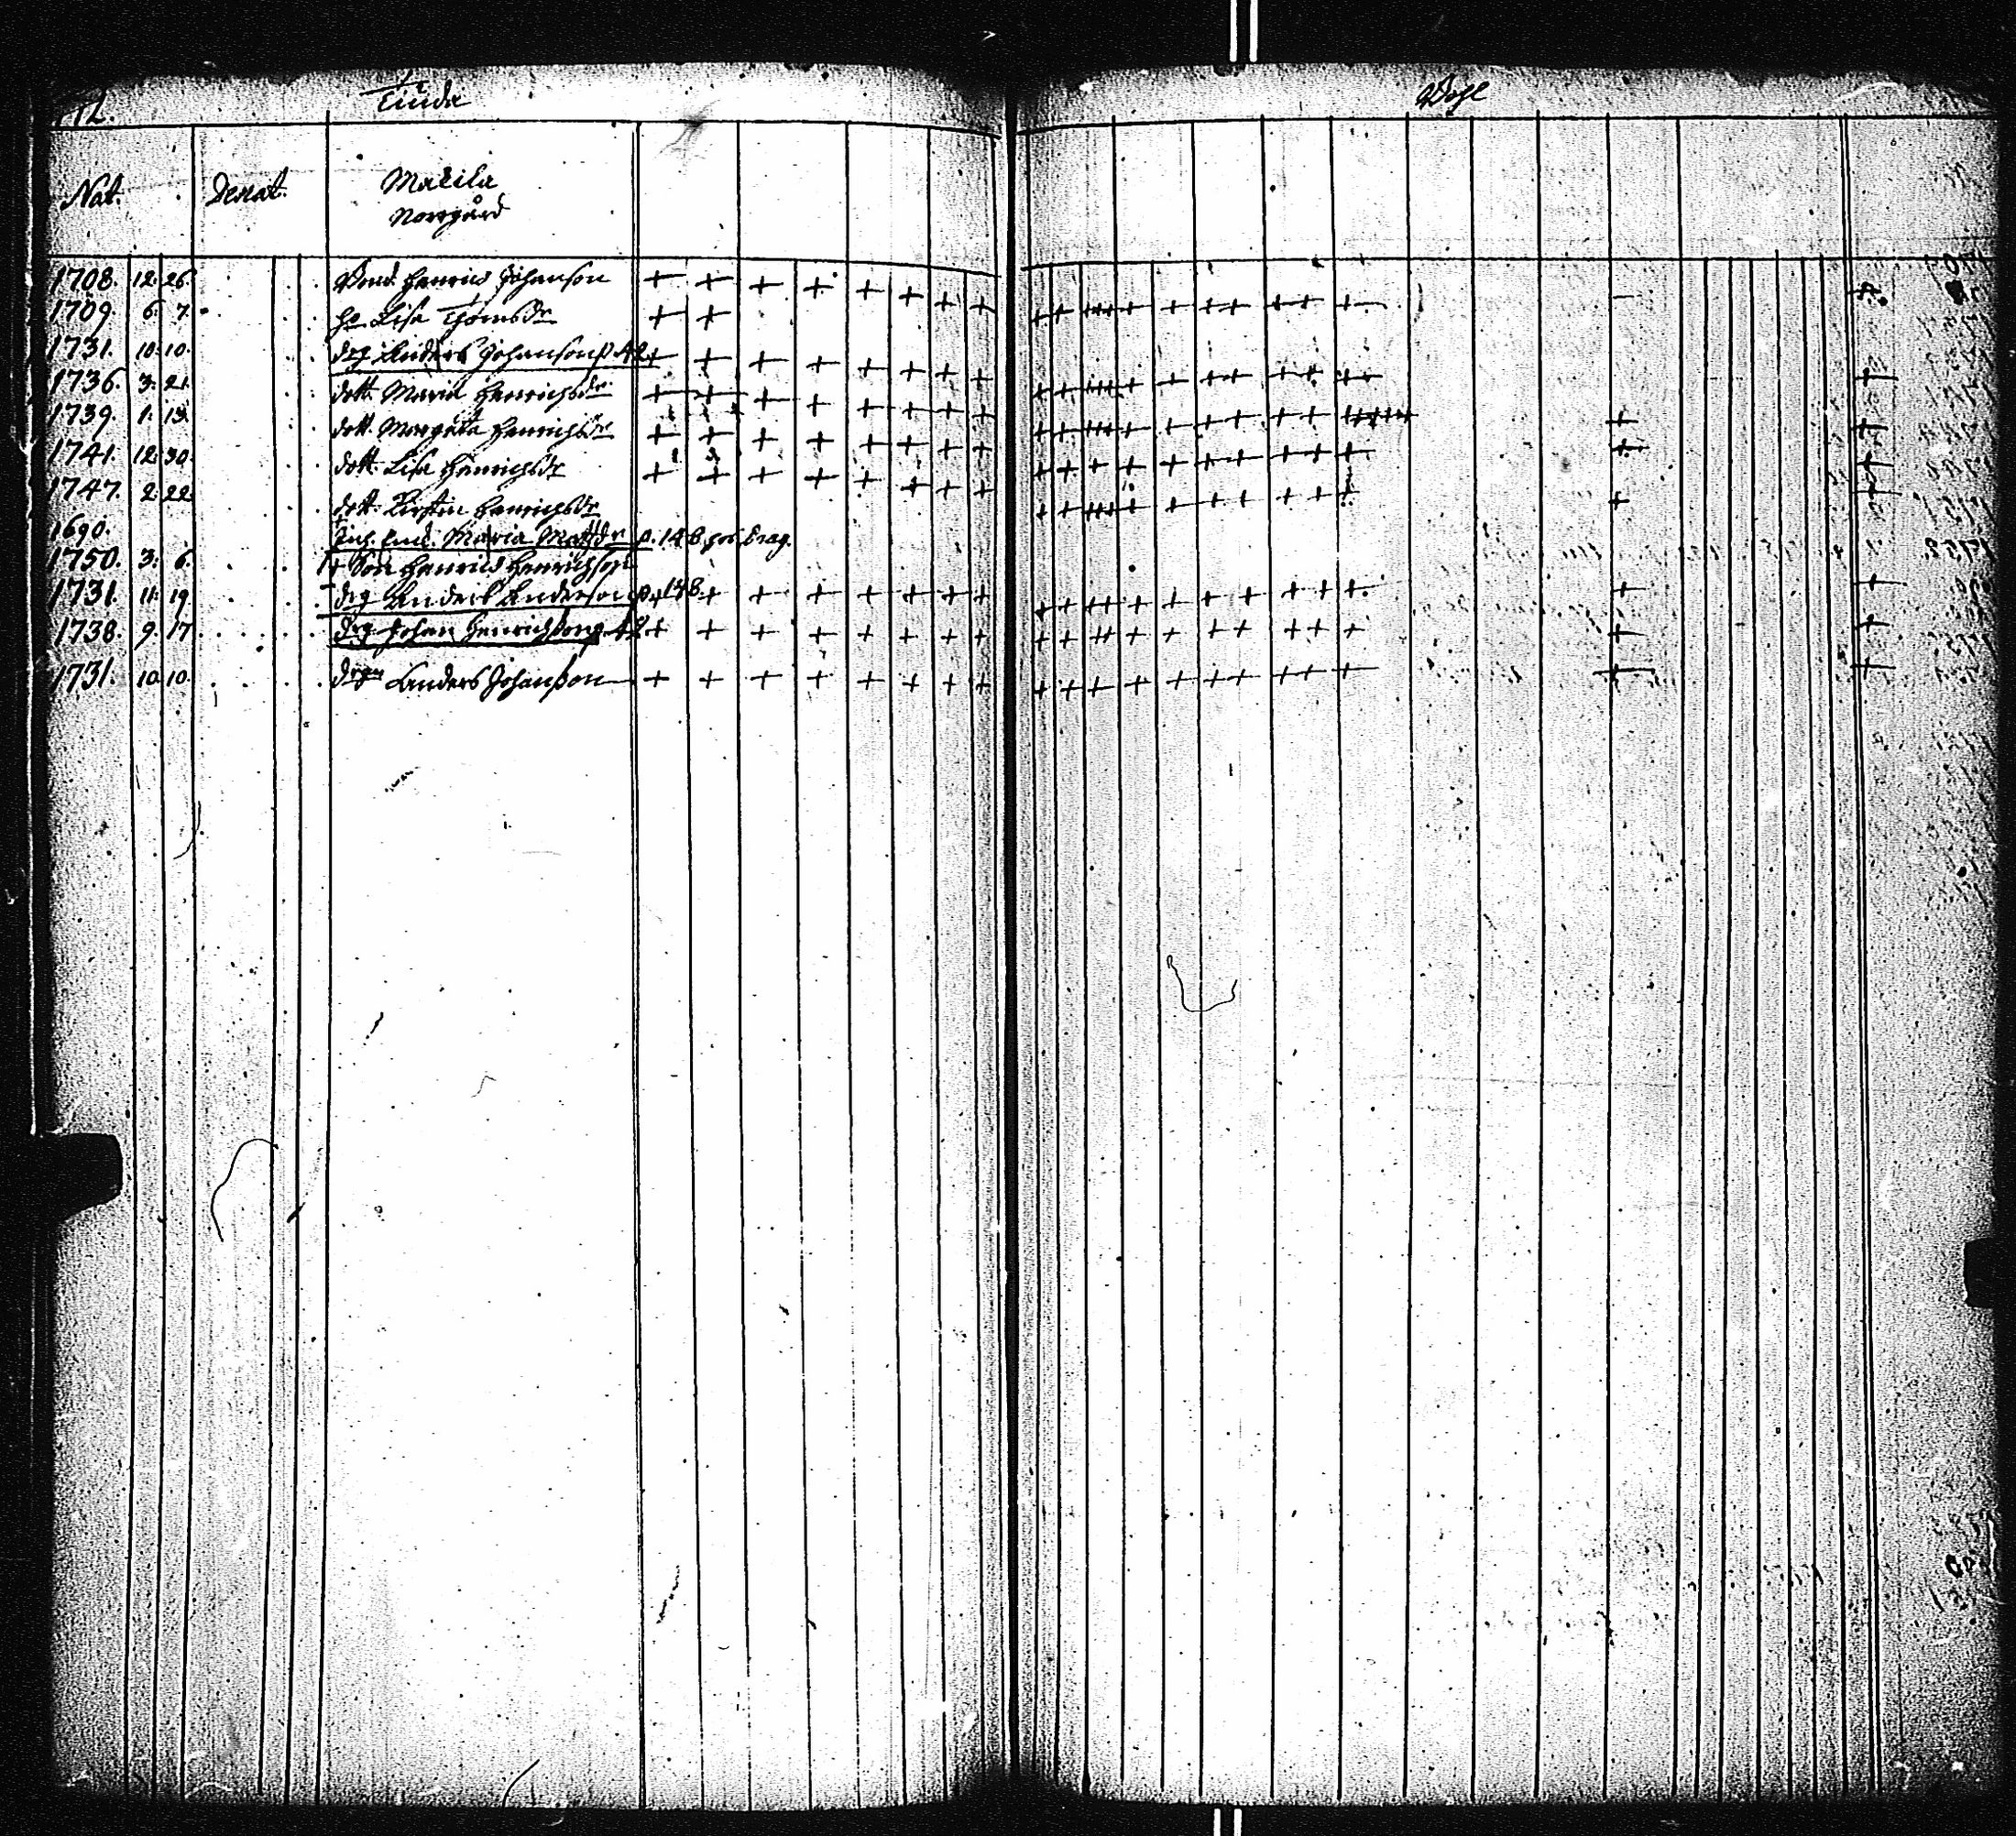 12.
Nat. Denat. Matila
Norrgård
1708. 12. 26. Bond. Henric Johanson
1709. 6. 7. ho Lisa Thomsdr
1731. 10. 10. drg Anders Johanson p. 42
1736. 3. 21. dott. Maria Henrichsdr
1739. 1. 13. dott. Margeta Henrichsdr
1741. 12. 30. dott. Lisa Henrichsdr
1747. 2. 22. dott. Kirstin Henrichsdr
1690. Inh. Maria Mattsdr p. 148
1750. 3. 6. Son Henric Henrichson
1731. 11. 19. drg Anders Anderson p. 148
1738. 9. 17. drg Johan Henrichson p. 42
1731. 10. 10. Anders Johanson